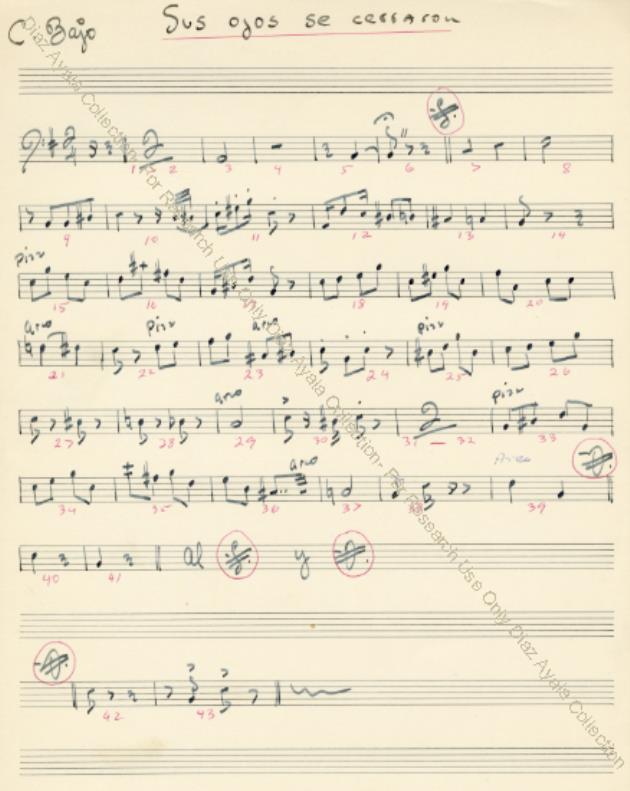 C Bajo Sus ojos se cerraron
1 2 3 4 5 6 7 8
9 10 11 12 13 14
pizz
15 16 17 18 19 20
arco pizz arco pizz
21 22 23 24 25 26
arco pizz
27 28 29 30 31 — 32 33
arco Arco
34 35 36 37 38 39
40 41 al y
42 43
Diaz Ayala Collection- For Research Use Only Diaz Ayala Collection- For Research Use Only Diaz Ayala Collection